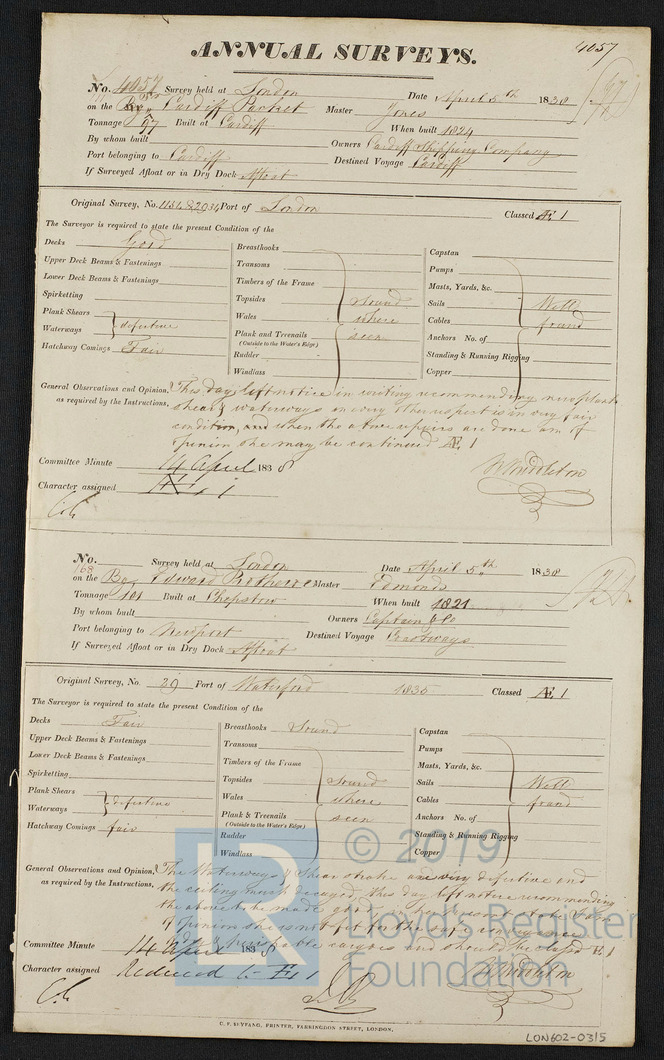 4057
ANNUAL SURVEYS.
No. 4057 Survey held at London Date April 5th 1838
on the Bg Cardiff Packet Master Jones
Tonnage 97 Built at Cardiff When built 1824
By whom built Owners Cardiff Shipping Company
Port belonging to Cardiff Destined Voyage Cardiff
If Surveyed Afloat or in Dry Dock Afloat
Original Survey, No. Port of London Classed Æ 1
The Surveyor is required to state the present Condition of the
Decks Good
Upper Deck Beams & Fastenings
Lower Deck Beams & Fastenings
Spirketting
Plank Shears
Waterways } defective
Hatchway Comings Fair
Breasthooks
Transoms
Timbers of the Frame
Topsides
Wales
Plank and Treenails
(Outside to the Water's Edge)
Rudder
Windlass
Sound
where
seen
Capstan
Pumps
Masts, Yards, &c.
Sails
Cables
Anchors No. of
Standing & Running Rigging
Copper
Well
found
General Observations and Opinion,
as required by the Instructions,
This day left notice in writing recommending new plank
shear & waterways in every other respect is in very fair
condition, and when the above repairs are done am of
opinion she may be continued Æ 1
Committee Minute 14 April 1838
Character assigned Æ 1
No. Survey held at London Date April 5th 1838
168
on the Bg Edward Master Edmonds
Tonnage 101 Built at Chepstow When built 1821
By whom built Owners Captain & Co
Port belonging to Newport Destined Voyage Coastways
If Surveyed Afloat or in Dry Dock Afloat
Original Survey, No. 29 Port of Waterford 1835 Classed Æ 1
The Surveyor is required to state the present Condition of the
Decks Fair
Upper Deck Beams & Fastenings
Lower Deck Beams & Fastenings
Spirketting
Plank Shears
Waterways } defective
Hatchway Comings fair
Breasthooks Sound
Transoms
Timbers of the Frame
Topsides
Wales
Plank & Treenails
(Outside to the Water's Edge)
Rudder
Windlass
Sound
where
seen
Capstan
Pumps
Masts, Yards, &c.
Sails
Cables
Anchors No. of
Standing & Running Rigging
Copper
Well
found
General Observations and Opinion,
as required by the Instructions,
The Waterways & Shear strake are very defective and
the ceiling much decayed, this day left notice recommending
the above to be made good
of opinion she is not fit for the safe conveyance
of dry & perishable cargoes and should be classed Æ 1
Committee Minute 14 April 1838
Character assigned Reduced to Æ 1
C. F. SEYFANG, PRINTER, FARRINGDON STREET, LONDON.
LON602-0315
© 2019
Lloyd's Register
Foundation
LR